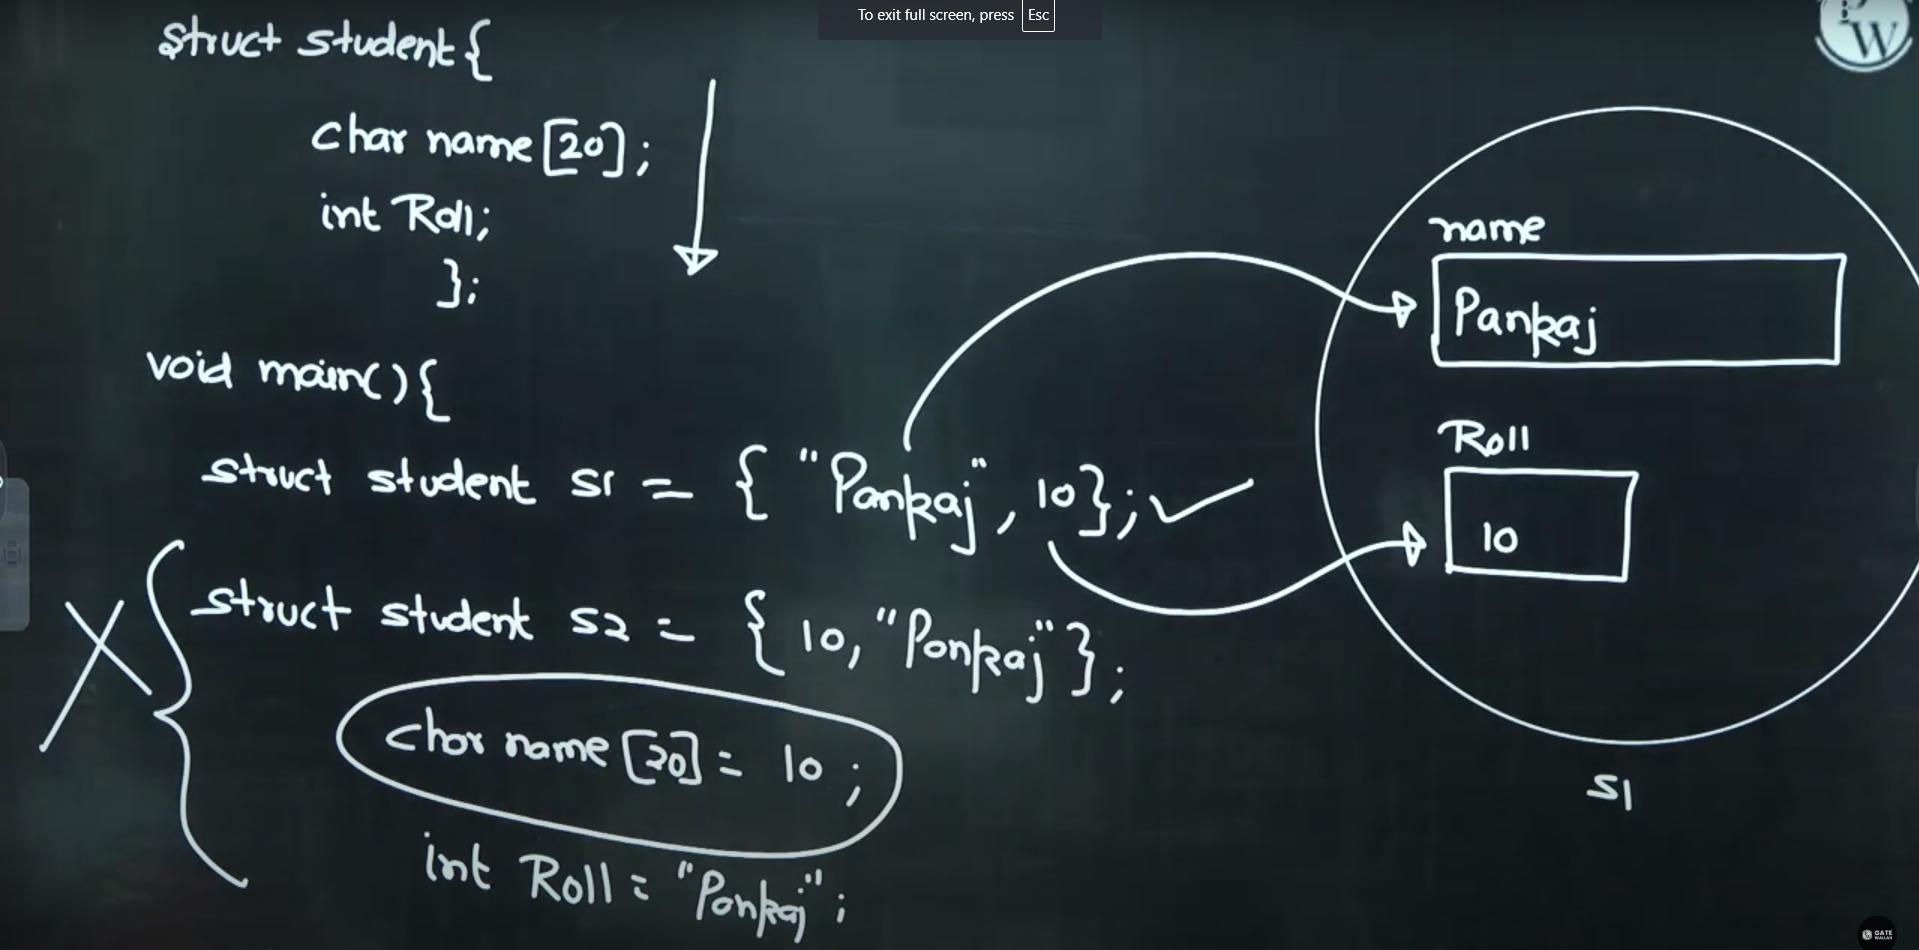 To exit full screen, press Esc
PW
struct student{
char name[20];
int Roll;
};
void main(){
struct student s1 = { "Pankaj", 10};
struct student s2 = { 10, "Pankaj"};
char name[20] = 10;
int Roll = "Pankaj";
name
Pankaj
Roll
10
S1
GATE
WALLAH